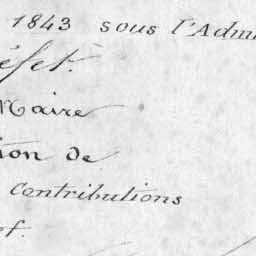 1843 sous l'Admi
éfet.
Maire
tion de
Contributions
ef.